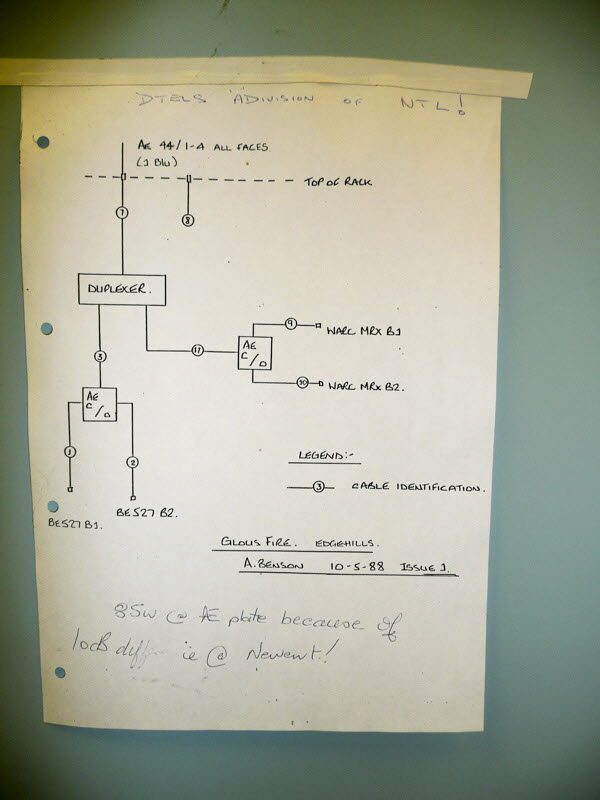 DTELS ADIVISION OF NTL!
AE 44/1-4 ALL FACES
(1 Blu)
TOP OF RACK
7
8
DUPLEXER.
9
WARC MRX B1
3
11
AE
C/O
10
WARC MRX B2.
AE
C/O
1
2
BE527 B1.
BE527 B2.
LEGEND:-
3
CABLE IDENTIFICATION.
GLOUS FIRE. EDGEHILLS.
A.BENSON 10-5-88 ISSUE 1.
85W @ AE plate because of
10dB diff ie @ Newent!